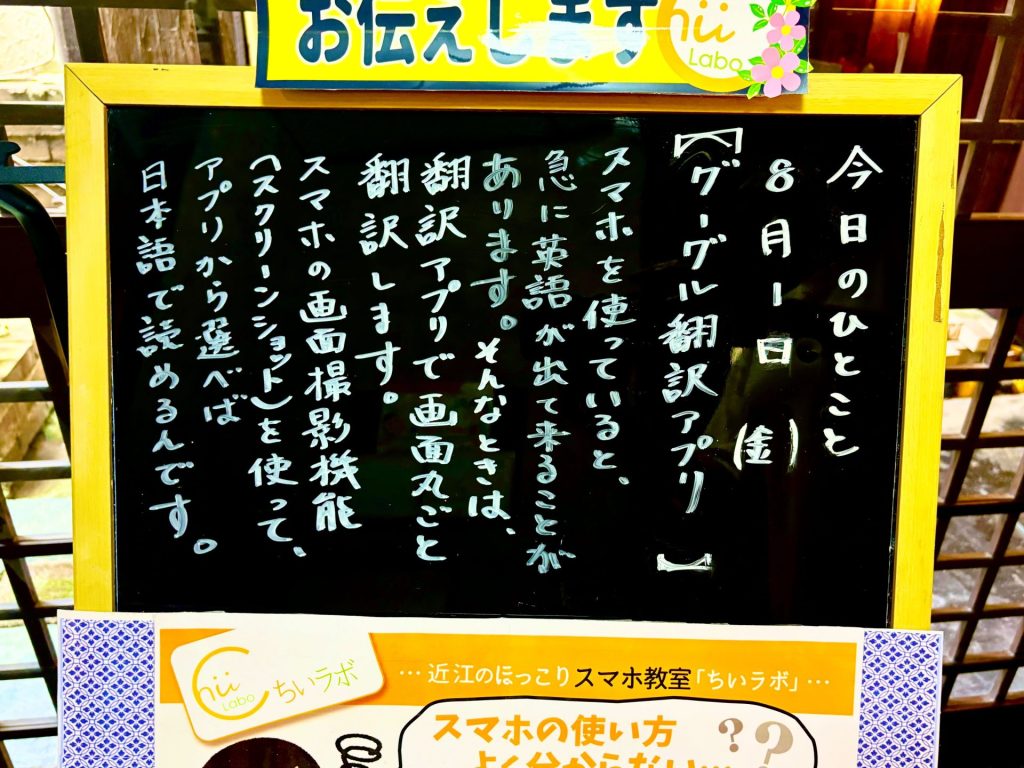 お伝えします
Chii
Labo
今日のひとこと
8月1日(金)
【グーグル翻訳アプリ】
スマホを使っていると、
急に英語が出て来ることが
あります。そんなときは、
翻訳アプリで画面丸ごと
翻訳します。
スマホの画面撮影機能
(スクリーンショット)を使って、
アプリから選べば
日本語で読めるんです。
Chii
Labo
ちいラボ
…近江のほっこりスマホ教室「ちいラボ」…
スマホの使い方
よく分からない…
??